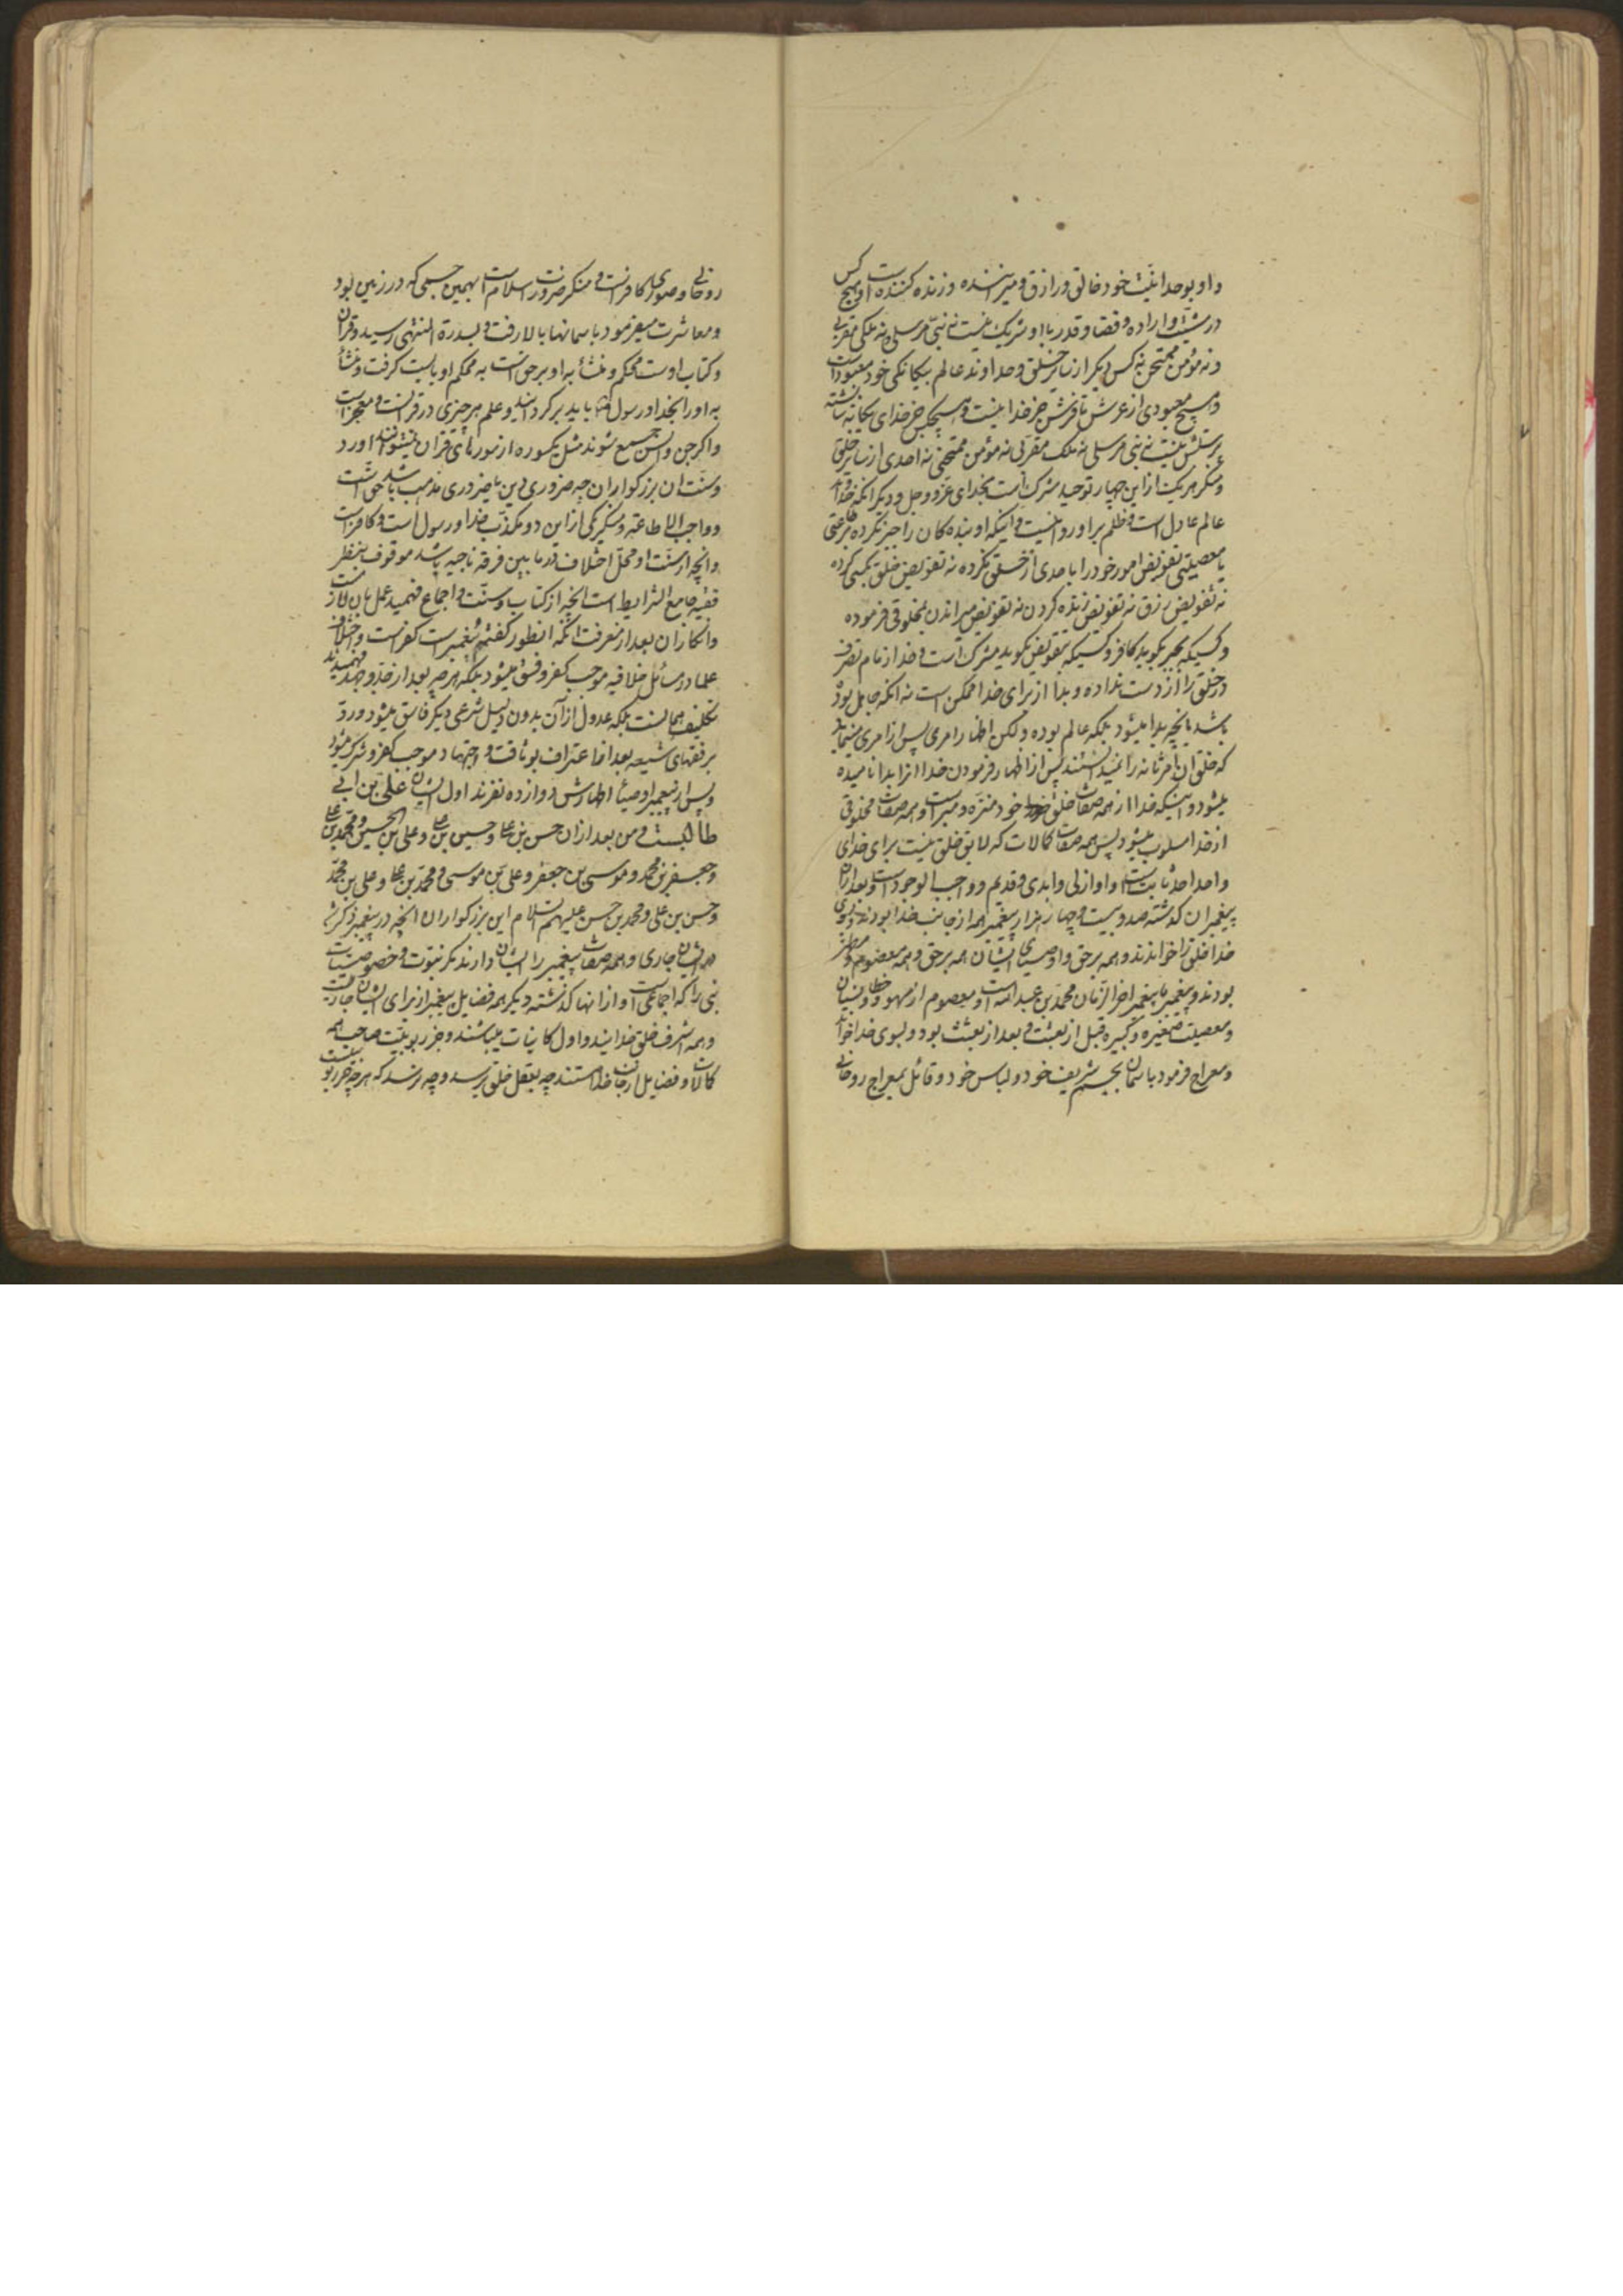 و او بوحدانیت خود خالق و رازق و میراننده و زنده کننده است و هیچ کس
در مشیت و اراده و قضا و قدر با او شریک نیست نه نبی مرسلی و نه ملکی مقربی
و نه مؤمن ممتحن نه کس دیگر از سایر خلق و خداوند عالم بیگانگی خود معبود است
و هیچ معبودی از عرش تا فرش جز خدا نیست و هیچکس جز خدای یگانه شایسته
پرستش نیست نه نبی مرسلی نه ملک مقربی نه مؤمن ممتحنی نه احدی از سایر خلق
و منکر هر یک از این چهار توحید مشرک است بخدای عز و جل و دیگر آنکه خداوند
عالم عادل است و ظلم بر او روا نیست و اینکه او بنده کان را جبر نکرده بر طاعتی
یا معصیتی تفویض امور خود را باحدی از خلق نکرده نه تفویض خلق بکسی کرده
نه تفویض رزق نه تفویض زنده کردن نه تفویض میراندن بمخلوقی فرموده
و کسیکه بجبر بگوید کافر و کسیکه بتفویض بگوید مشرک است و خدا زمام تصرف
در خلق را از دست نداده و بدا از برای خدا ممکن است نه آنکه جاهل بوده
باشد بآنچه بدا میشود بلکه عالم بوده ولکن اظهار امری پس از امری مینماید
که خلق آن امر ثانه را نمیدانستند پس از اظهار فرمودن خدا انرا بدا نامیده
میشود و اینکه خدا از همه صفات خلق خود منزه و مبراست و همه صفات مخلوقی
از خدا مسلوب میشود پس همه صفات کمالات که لایق خلق نیست برای خدای
واحد احد ثابت است و او ازلی و ابدی و قدیم و واجب الوجود است و بعد از آن
پیغمبران گذشته صد و بیست و چهار هزار پیغمبر همه از جانب خدا بودند و بسوی
خدا خلق را خواندند و همه بر حق و اوصیای ایشان همه بر حق و همه معصوم و مطهر
بودند و پیغمبر ما پیغمبر آخر الزمان محمد بن عبد الله است و معصوم از سهو و خطا و نسیان
و معصیت صغیره و کبیره قبل از بعثت و بعد از بعثت بود و بسوی خدا خواند
و معراج فرمود باسمان بجسم شریف خود و لباس خود و قائل بمعراج روحانی
روحانی و صوری کافر است و منکر ضرورت اسلام است بهمین جسمی که در زمین بود
و معاشرت میفرمود باسمانها بالا رفت و بسدرة المنتهی رسید و قرآن
و کتاب اوست محکم و متشابه او بر حق است به محکم او بایست گرفت و متشا
به او را بخدا و رسول باید برگردانید و علم هر چیزی در قرآنست و معجز است
و اگر جن و انس جمع شوند مثل یکسوره از سورهای قرآن نمیتوانند آورد
و سنت آن بزرگواران چه ضروری دین یا ضروری مذهب باشد حق است
و واجب الاطاعة و منکر یکی از این دو مکذب خدا و رسول است و کافر است
و آنچه از سنت او محل اختلاف در ما بین فرقه ناجیه باشد موقوف بنظر
فقیه جامع الشرایط است آنچه از کتاب و سنت و اجماع فهمید عمل بآن لازم است
و انکار آن بعد از معرفت آنکه اینطور گفته پیغمبر است کفر است و اختلاف
علما در مسائل خلافیه موجب کفر و فسق نمیشود بلکه هر چه بعد از جد و جهد فهمیدند
تکلیف همانست بلکه عدول از آن بدون دلیل شرعی دیگر فاسق میشود و رد
بر فقهای شیعه بعد از اعتراف بوثاقت و اجتهاد موجب کفر و شرک میشود
و پس از پیغمبر اوصیاء اطهارش دوازده نفرند اول ایشان علی بن ابی
طالبست و من بعد از آن حسن بن علی و حسین بن علی و علی بن الحسین و محمد بن علی
و جعفر بن محمد و موسی بن جعفر و علی بن موسی و محمد بن علی و علی بن محمد
و حسن بن علی و محمد بن حسن علیهم السلام این بزرگواران آنچه در پیغمبر ذکر شد
در ایشان جاری و همه صفات پیغمبر را ایشان دارند مگر نبوت و خصوصیات
نبی را که اجماعی است و از آنها گذشته دیگر همه فضایل پیغمبر از برای ایشان جاریست
و همه اشرف خلق خدایند و اول کاینات میباشند و جز ربوبیت صاحب همه
کمالات و فضایل از جانب خدا هستند چه بعقل خلق برسد و چه نرسد که هر چه جز ربوبیت